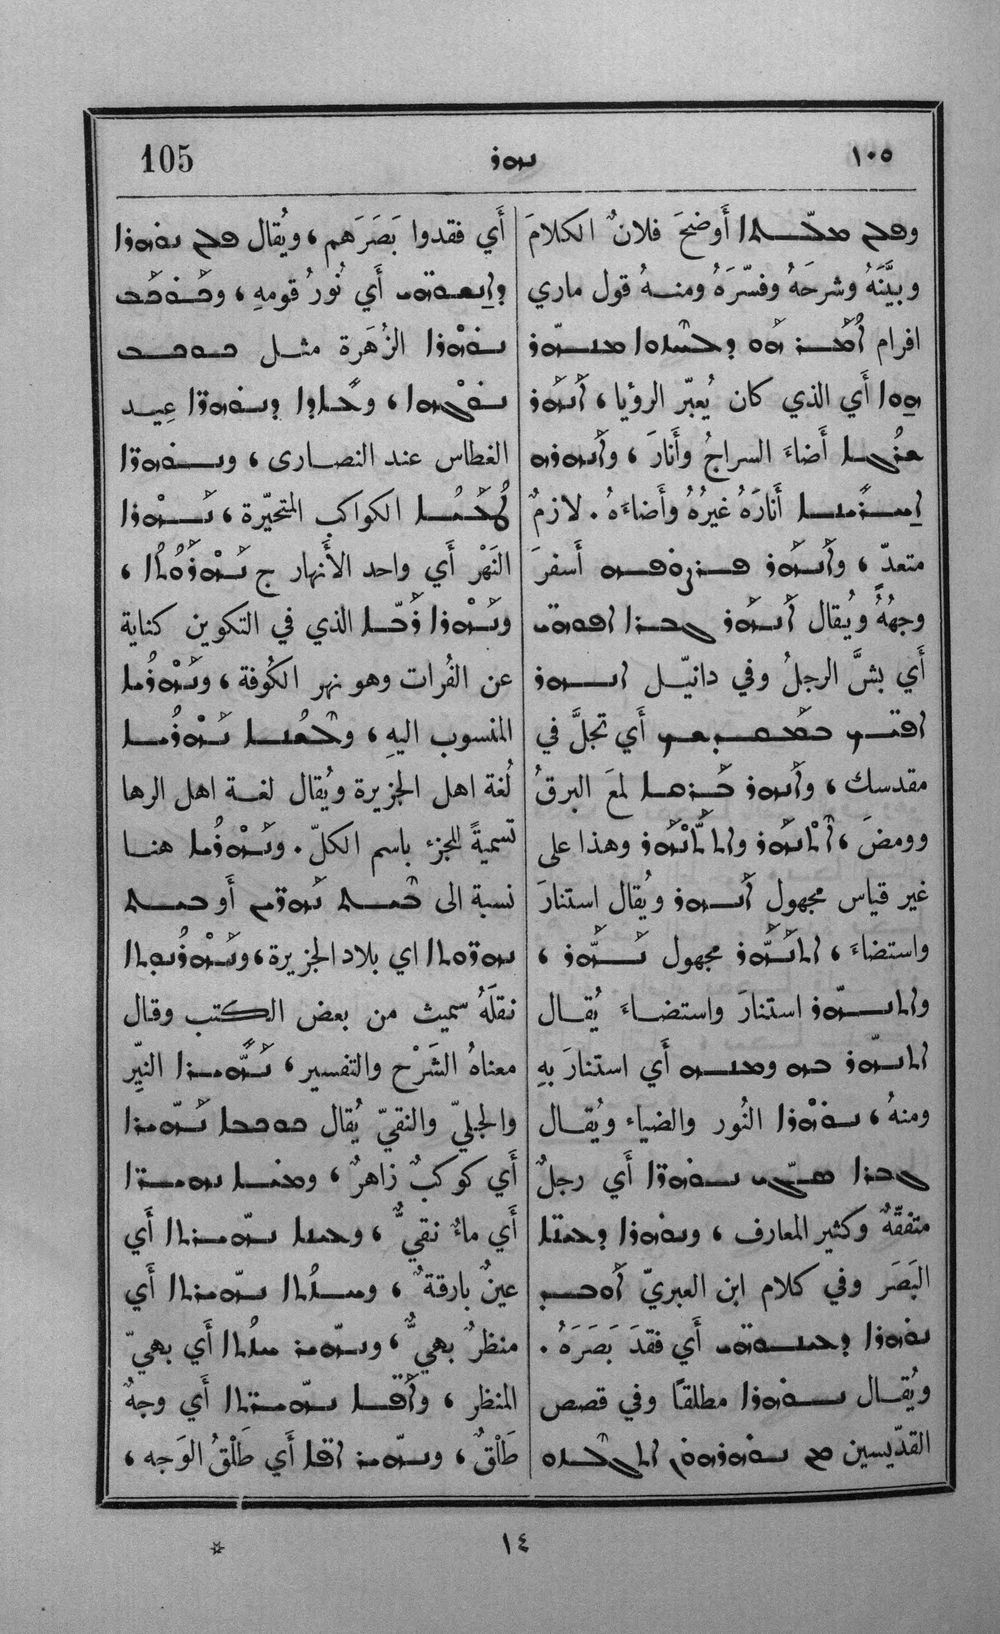 ١٠٥ ܢܗܪ 105
أَوضحَ فلانٌ الكلامَ
وبيَّنَهُ وشرحَهُ وفسّرَهُ ومنهُ قول ماري
افرام ܗܘ
ܗܘܐ أَي الذي كان يُعبّر الرؤيا، ܐܢܗܪ
ܫܪܓܐ أَضاءَ السراجُ وأَنارَ، ܘܐܢܗܪܗ
ܐܚܪܢܐ أَنارَهُ غيرُهُ وأَضاءَهُ. لازمٌ
متعدّ، ܘܐܢܗܪ ܦܪܨܘܦܗ أَسفرَ
وجههُ ويُقال ܐܢܗܪ ܓܒܪܐ ܐܦܘܗܝ
أَي بشَّ الرجلُ وفي دانيّل ܐܢܗܪ
ܐܦܝܟ أَي تجلَّ في
مقدسك، ܘܐܢܗܪ ܒܪܩܐ لمعَ البرقُ
وومضَ، ܐܬܢܗܪ ܘܐܬܬܢܗܪ وهذا على
غير قياس مجهول ܐܢܗܪ ويُقال استنارَ
واستضاءَ، ܐܬܢܗܪ مجهول ܢܗܪ،
ܘܐܬܢܗܪ استنارَ واستضاءَ يُقال
ܐܬܢܗܪ ܒܗ ܘܡܢܗ أَي استنارَ بهِ
ومنهُ، ܢܘܗܪܐ النُور والضياء ويُقال
ܓܒܪܐ ܣܓܝ ܢܘܗܪܐ أَي رجلٌ
متفقّهٌ وكثير المعارف، ܘܢܘܗܪܐ ܕܥܝܢܐ
البَصَر وفي كلام ابن العبريّ ܐܘܒܕ
ܢܘܗܪܐ ܕܥܝܢܘܗܝ أَي فقدَ بَصَرَهُ.
ويُقال ܢܘܗܪܐ مطلقًا وفي قصص
القدّيسين ܡܢ ܢܘܗܪܗܘܢ ܐܬܓܠܙܘ
أَي فقدوا بَصَرَهم، ويُقال ܢܘܗܪܐ
أَي نُورُ قومهِ، ܘܟܘܟܒ
ܢܘܗܪܐ الزُهَرة مثل ܟܘܟܒ
ܢܘܓܗܐ، ܘܥܐܕܐ ܕܢܘܗܪܐ عِيد
الغطاس عند النصارى، ܘܢܘܗܪܐ
ܛܥܝܐ الكواكب المتحيّرة، ܢܗܪܐ
النَهْر أَي واحد الأَنهار ج ܢܗܪܘܬܐ،
ܘܢܗܪܐ ܪܒܐ الذي في التكوين كناية
عن الفُرات وهو نهر الكُوفة، ܘܢܗܪܝܐ
المنسوب اليهِ، ܘܠܫܢܐ ܢܗܪܝܐ
لُغة اهل الجزيرة ويُقال لغة اهل الرها
تسميةً للجزء باسم الكلّ. ܘܢܗܪܝܐ هنا
نسبة الى ܒܝܬ ܢܗܪܝܢ أَو ܒܝܬ
ܢܗܪܘܬܐ اي بلاد الجزيرة،
نقلَهُ سميث من بعض الكتب وقال
معناهُ الشَرْح والتفسير، ܢܗܝܪܐ النيّر
والجليّ والنقيّ يُقال ܟܘܟܒܐ ܢܗܝܪܐ
أَي كوكبٌ زاهرٌ، ܘܡܝܐ ܢܗܝܪܐ
أَي ماءٌ نقيٌّ، ܘܥܝܢܐ ܢܗܝܪܬܐ أَي
عينٌ بارقةٌ، ܘܚܙܬܐ ܢܗܝܪܬܐ أَي
منظرٌ بهيٌّ، ܘܢܗܝܪ ܚܙܬܐ أَي بهيّ
المنظر، ܘܐܦܐ ܢܗܝܪܬܐ أَي وجهٌ
طَلْقٌ، ܘܢܗܝܪ ܐܦܐ أَي طَلْقُ الوَجه،
١٤